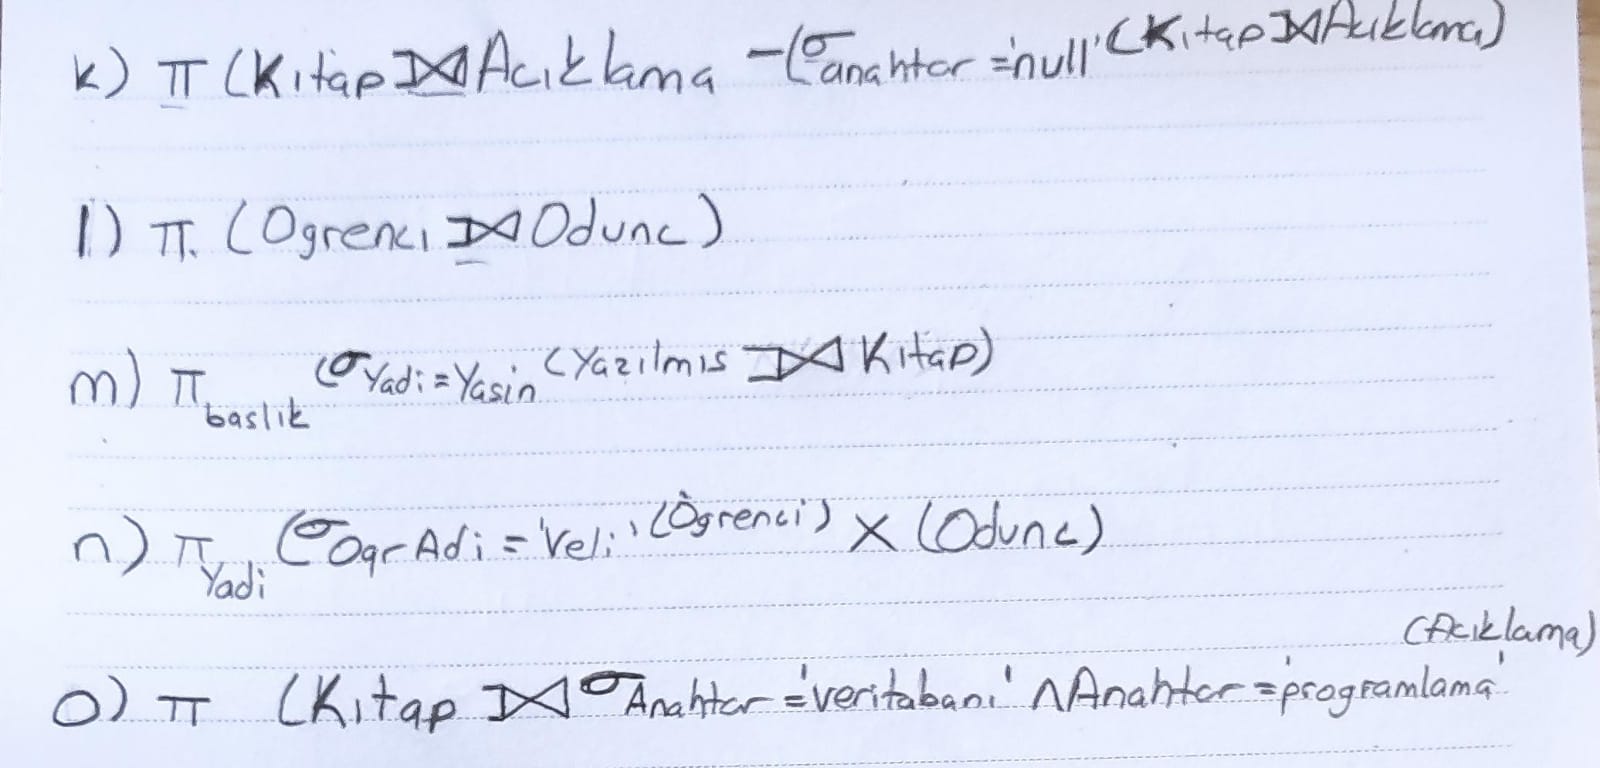 k) π (Kitap ⟕ Acıklama - (σ anahtar = 'null' (Kitap ⟕ Acıklama)
l) π. (Ogrenci ⟕ Odunc)
m) π baslık (σ Yadi = Yasin (Yazılmıs ⟕ Kitap)
n) π Yadi (σ OgrAdi = 'Veli' (Ögrenci) X (Odunc)
o) π (Kitap ⟕ σ Anahtar = 'veritabani' ∧ Anahtar = 'programlama' (Acıklama)